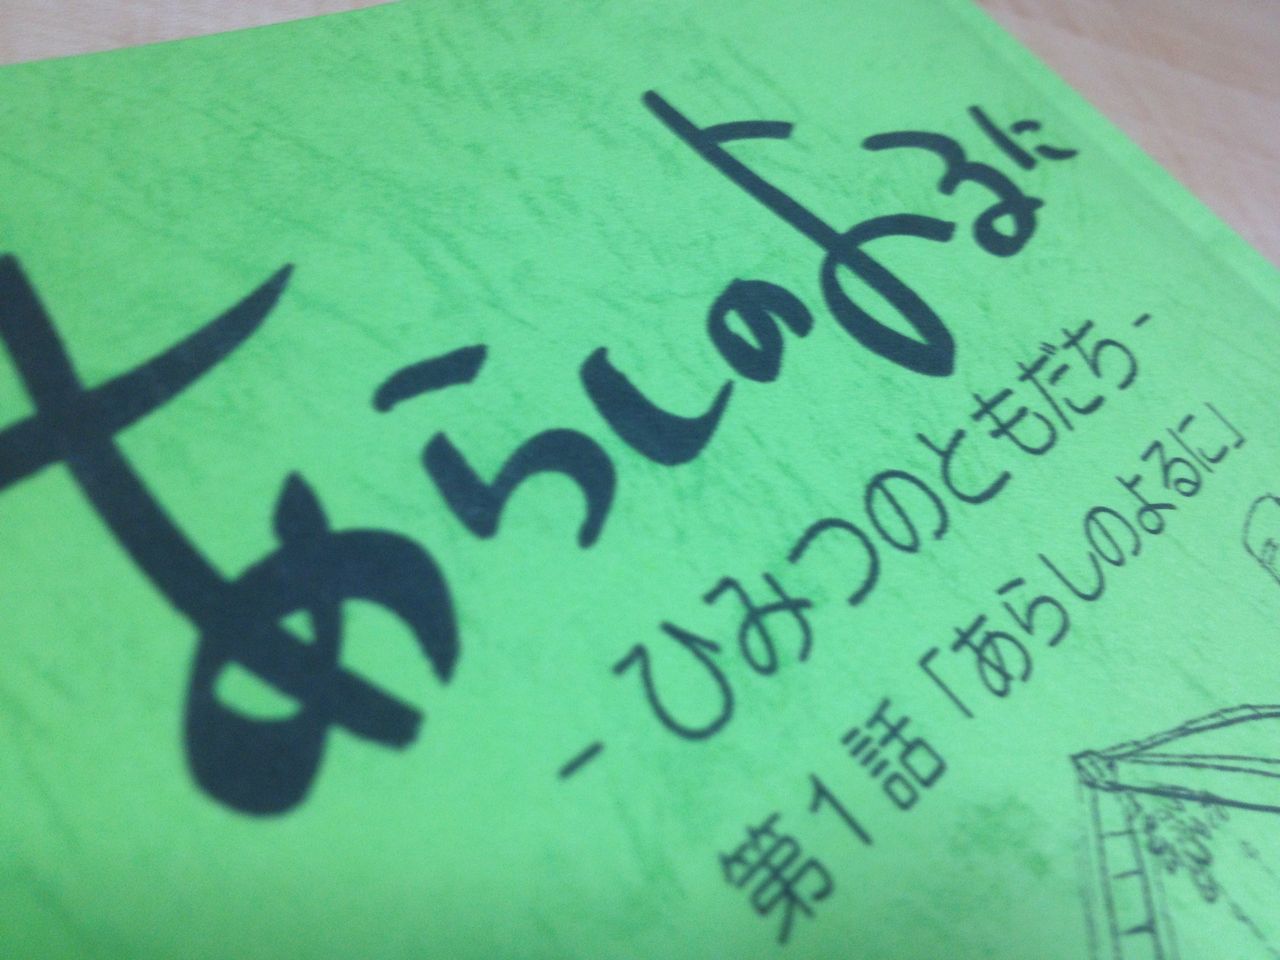 あらしのよるに
- ひみつのともだち -
第1話「あらしのよるに」